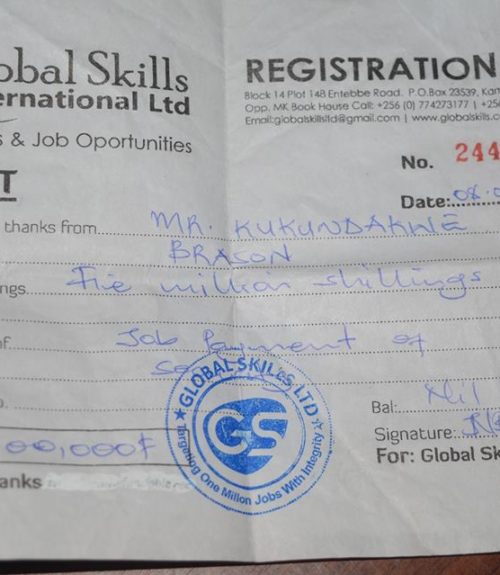 obal Skills
ernational Ltd
s & Job Oportunities
REGISTRATION
Block 14 Plot 148 Entebbe Road. P.O.Box 23539, Kam
Opp. MK Book House Call: +256 (0) 774273177 | +256
Email:globalskillsltd@gmail.com | www.globalskills.c
No. 244
T
Date: 08.0
thanks from MR. KUKUNDAKWE
BRASON
ngs. Five million shillings
of Job Payment of
GLOBAL SKILES LTD
GS
Targeting One Milion Jobs With Integrity
Bal: Nil
Signature:
00,000/=
For: Global Sk
anks